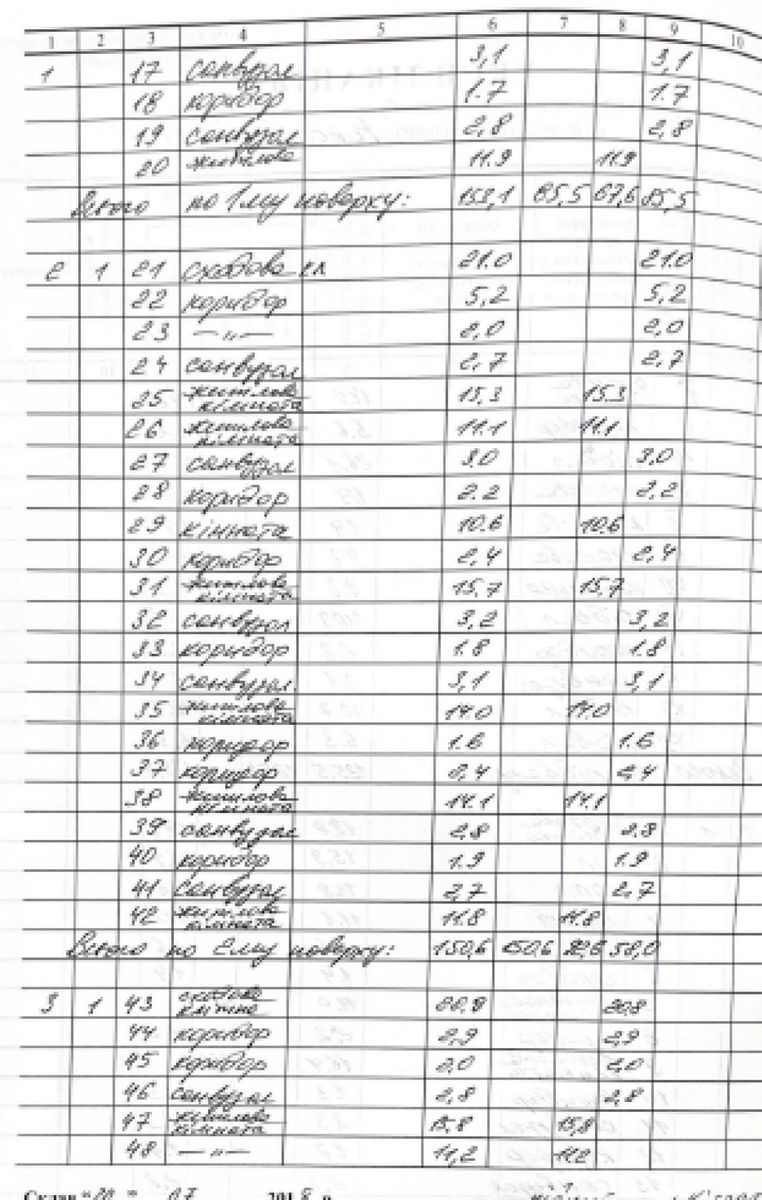 1 2 3 4 5 6 7 8 9 10
1 17 санвузол 3,1 3,1
18 коридор 1.7 1.7
19 санвузол 2,8 2,8
20 житлова 11.9 11.9
Всього по 1му поверху: 153,1 85,5 67,6 85,5
2 1 21 сходова кл 21.0 21.0
22 коридор 5,2 5,2
23 —„— 2,0 2,0
24 санвузол 2,7 2,7
25 житлова кімната 15,3 15.3
26 житлова кімната 11.1 11.1
27 санвузол 3,0 3,0
28 коридор 2,2 2,2
29 кімната 10.6 10.6
30 коридор 2,4 2,4
31 житлова кімната 15,7 15,7
32 санвузол 3,2 3,2
33 коридор 1.8 1.8
34 санвузол 3,1 3,1
35 житлова кімната 14.0 14.0
36 коридор 1.6 1.6
37 коридор 2,4 2,4
38 житлова кімната 14.1 14.1
39 санвузол 2,8 2,8
40 коридор 1.9 1.9
41 санвузол 2,7 2,7
42 житлова кімната 11.8 11.8
Всього по 2му поверху: 150,6 150,6 92,6 58,0
3 1 43 сходова клітина 20.8 20.8
44 коридор 2,9 2,9
45 коридор 2,0 2,0
46 санвузол 2,8 2,8
47 житлова кімната 15,8 15,8
48 —„— 11,2 11,2
07 201 р.